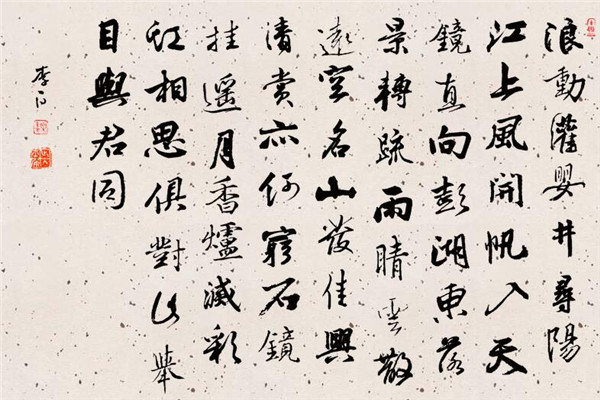 浪動灌嬰井尋陽
江上風開帆入天
鏡直向彭湖東落
景轉疏雨晴雲散
遠空名山發佳興
清賞亦何窮石鏡
挂遥月香爐滅彩
虹相思俱對此舉
目與君同
李白